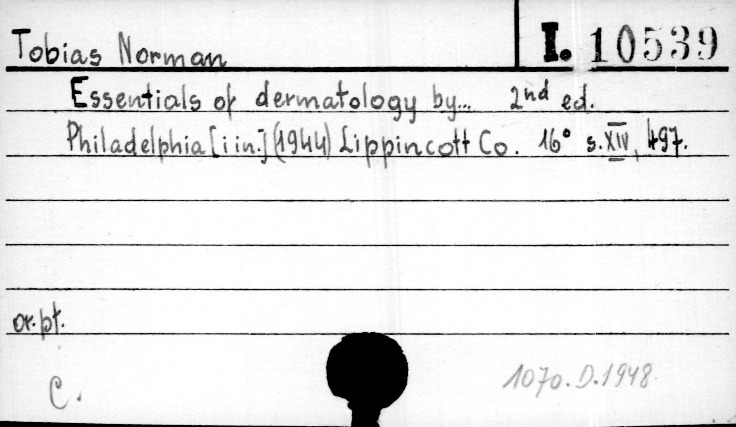 Tobias Norman I. 10539
Essentials of dermatology by... 2nd ed.
Philadelphia [i in.] (1944) Lippincott Co. 16° s. XIV, 497.
or. pt.
C. 1070. D. 1948.